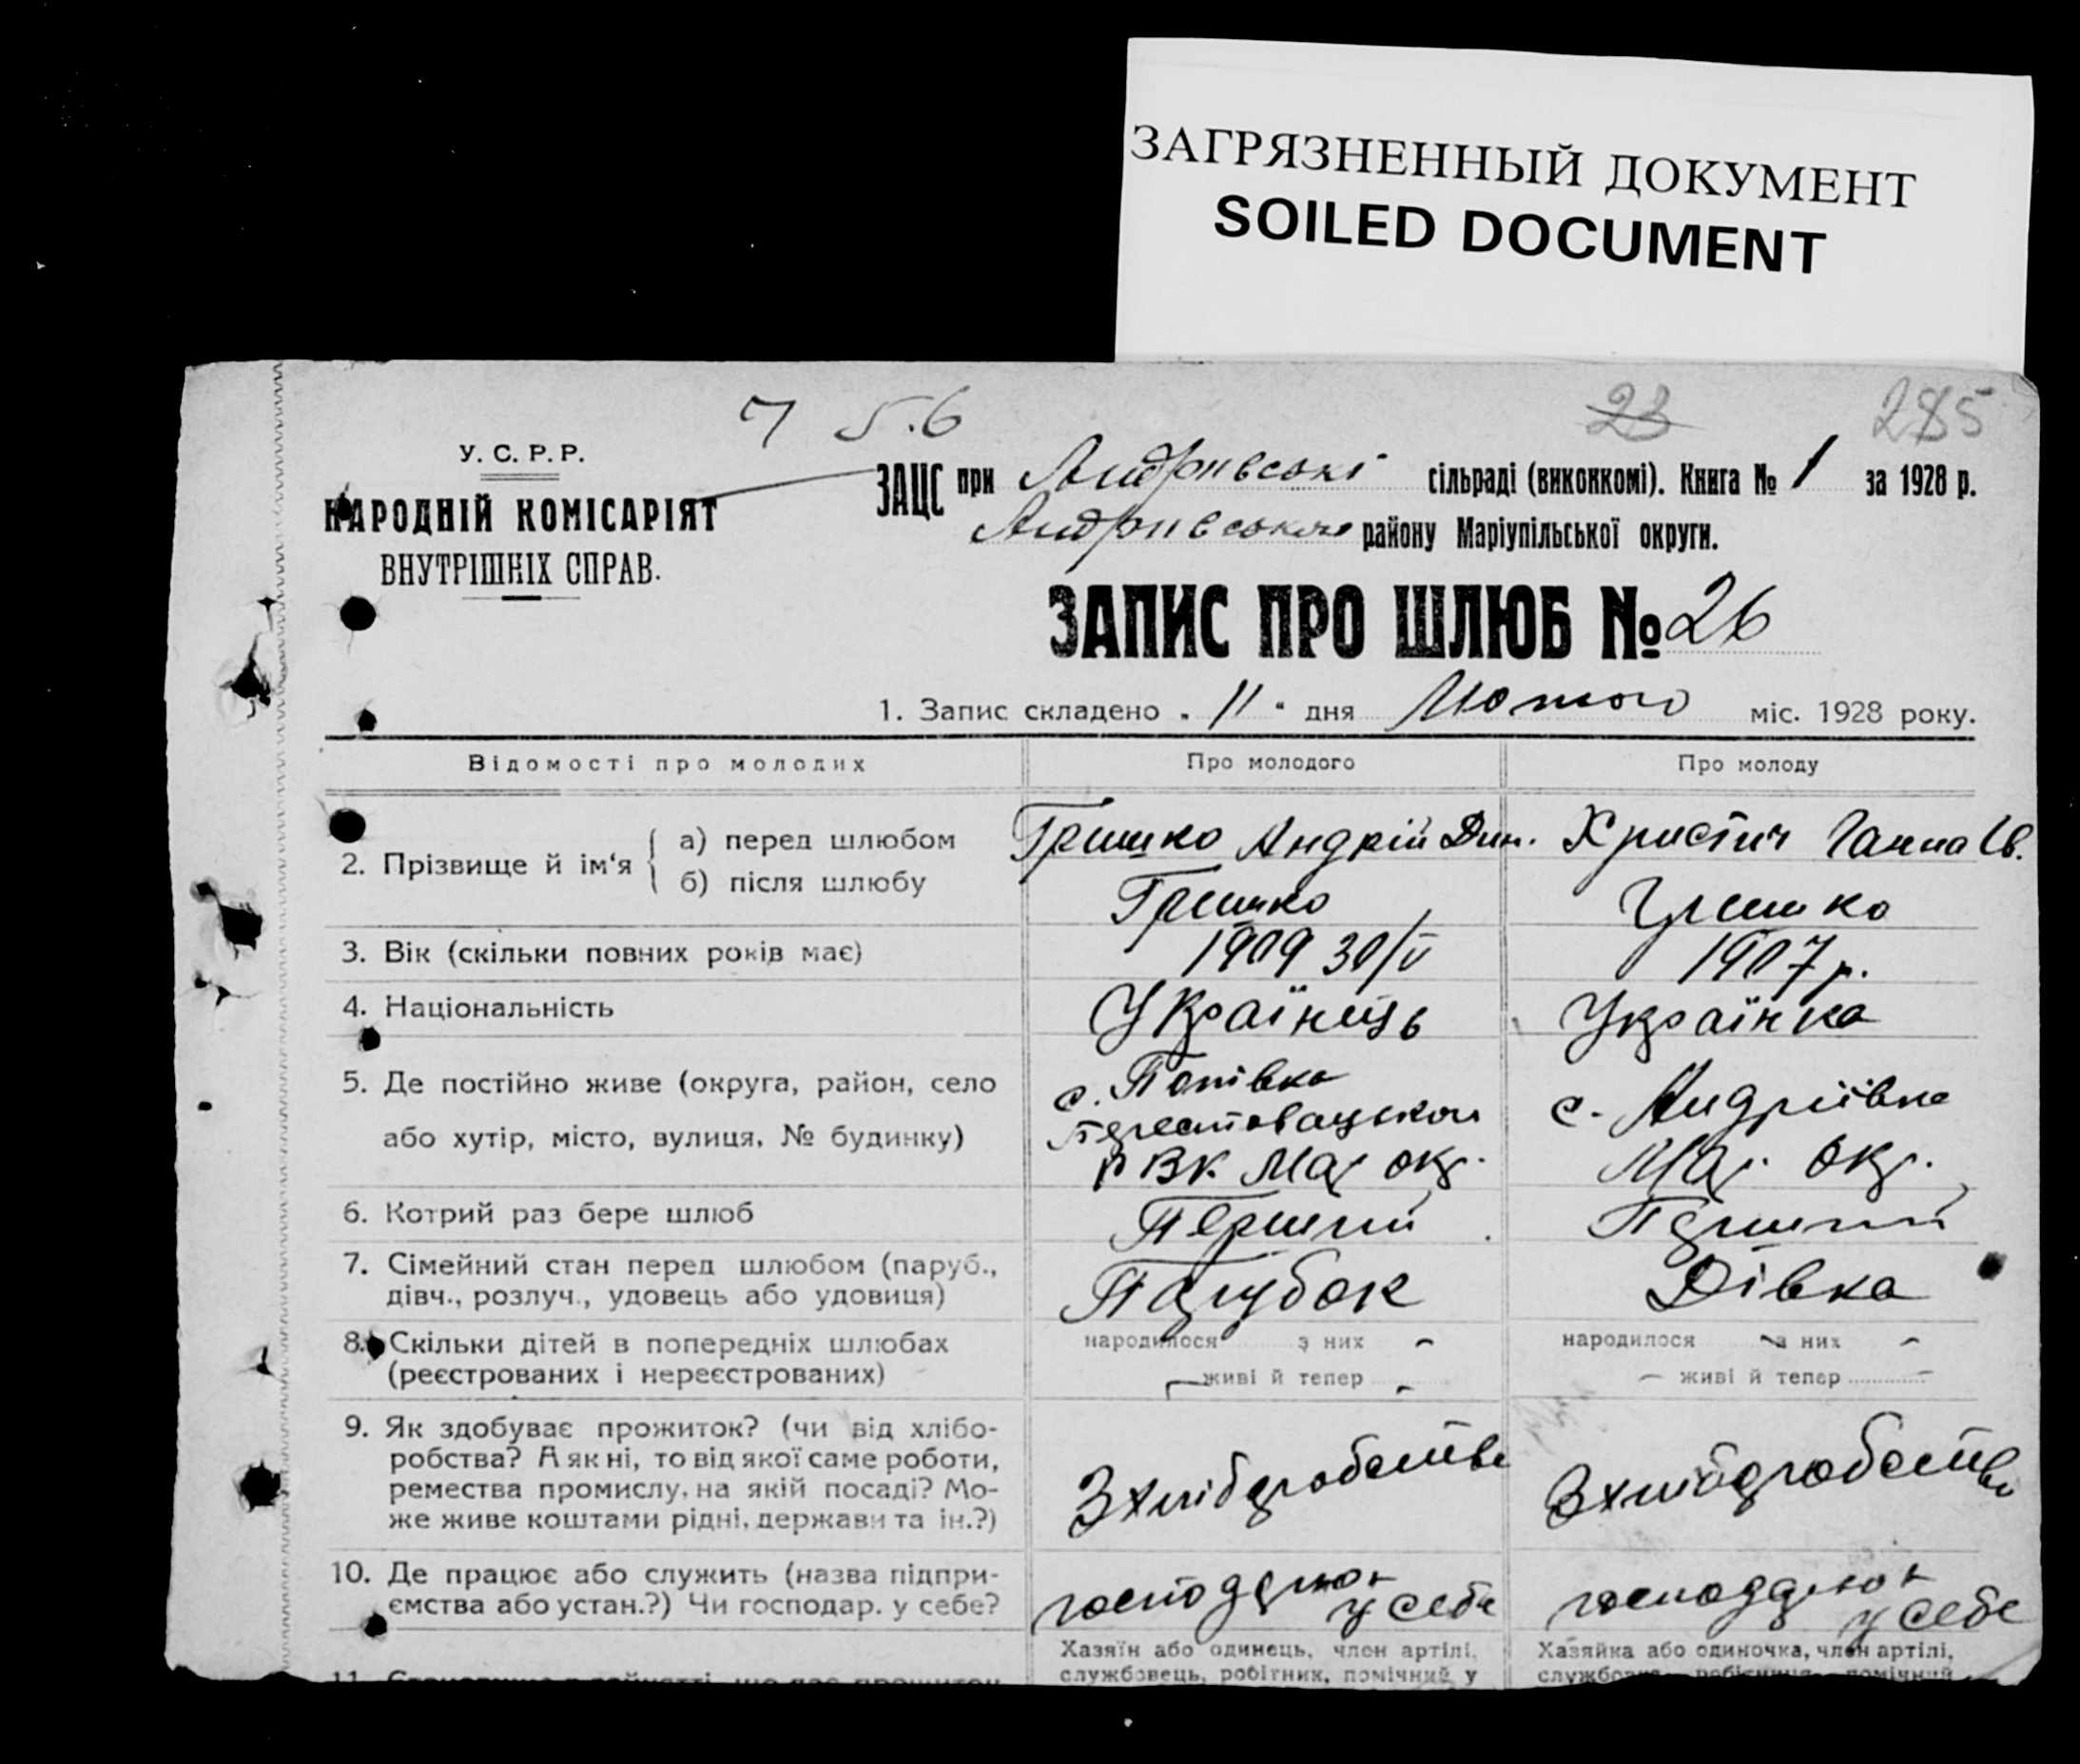 ЗАГРЯЗНЕННЫЙ ДОКУМЕНТ
SOILED DOCUMENT
7 5.6
23
285
У. С. Р. Р.
НАРОДНІЙ КОМІСАРІЯТ
ВНУТРІШНІХ СПРАВ.
ЗАЦС при Андріівські сільраді (виконкомі). Книга № 1 за 1928 р.
Андріівського району Маріупільської округи.
ЗАПИС ПРО ШЛЮБ № 26
1. Запис складено „ 11 " дня Лютого міс. 1928 року.
Відомості про молодих
Про молодого
Про молоду
2. Прізвище й ім'я
а) перед шлюбом
Гришко Андрій Дим.
Христич Ганна Ів.
б) після шлюбу
Гришко
Гришко
3. Вік (скільки повних років має)
1909 30/V
1907 р.
4. Національність
Українець
Українка
5. Де постійно живе (округа, район, село
або хутір, місто, вулиця, № будинку)
с. Попівка
РВК Мар окр.
с. Андріївка
Мар. окр.
6. Котрий раз бере шлюб
Перший
Перший
7. Сімейний стан перед шлюбом (паруб.,
дівч., розлуч., удовець або удовиця)
Парубок
Дівка
8. Скільки дітей в попередніх шлюбах
(реєстрованих і нереєстрованих)
народилося - з них -
живі й тепер -
народилося - з них -
- живі й тепер -
9. Як здобуває прожиток? (чи від хлібо-
робства? А як ні, то від якої саме роботи,
ремества промислу, на якій посаді? Мо-
же живе коштами рідні, держави та ін.?)
З хліборобства
З хліборобства
10. Де працює або служить (назва підпри-
ємства або устан.?) Чи господар. у себе?
господарює
у себе
господарює
у себе
Хазяїн або одинець, член артілі,
службовець, робітник, помічний у
Хазяйка або одиночка, член артілі,